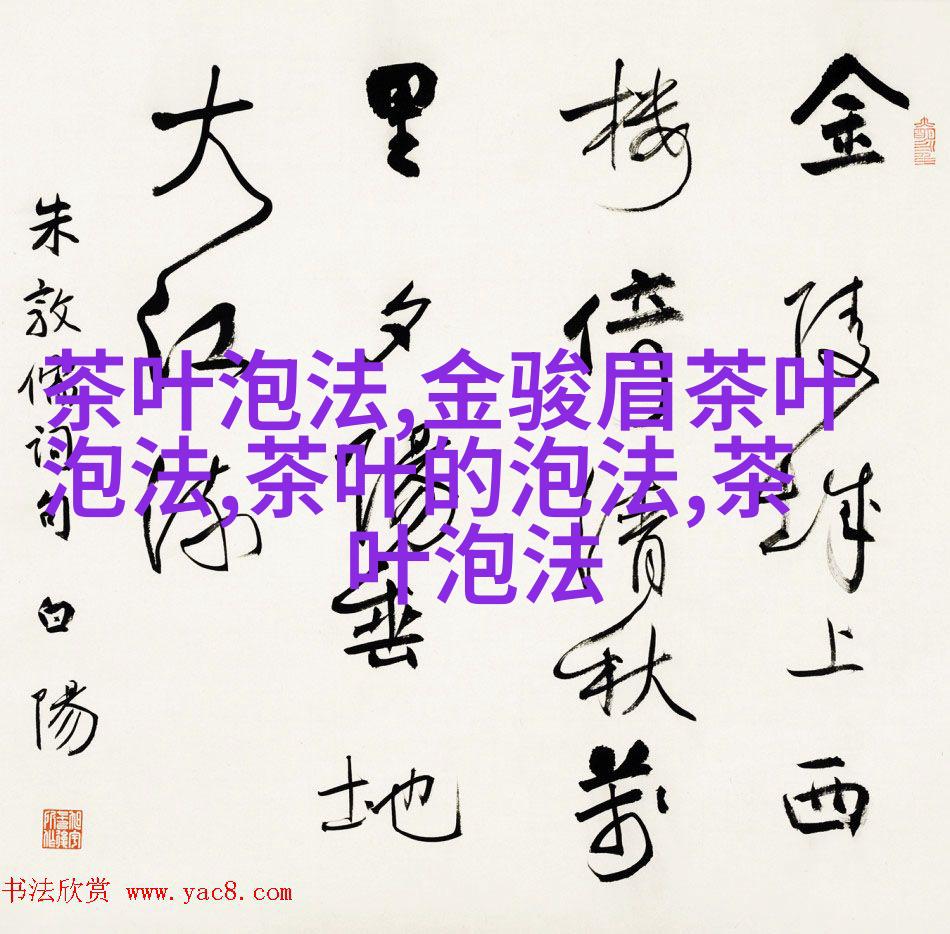 金陵城上西
楼倚清秋萬
里夕陽垂地
大江流
朱敦儒词句 白陽
茶叶泡法,金骏眉茶叶
泡法,茶叶的泡法,茶
叶泡法
书法欣赏 www.yac8.com